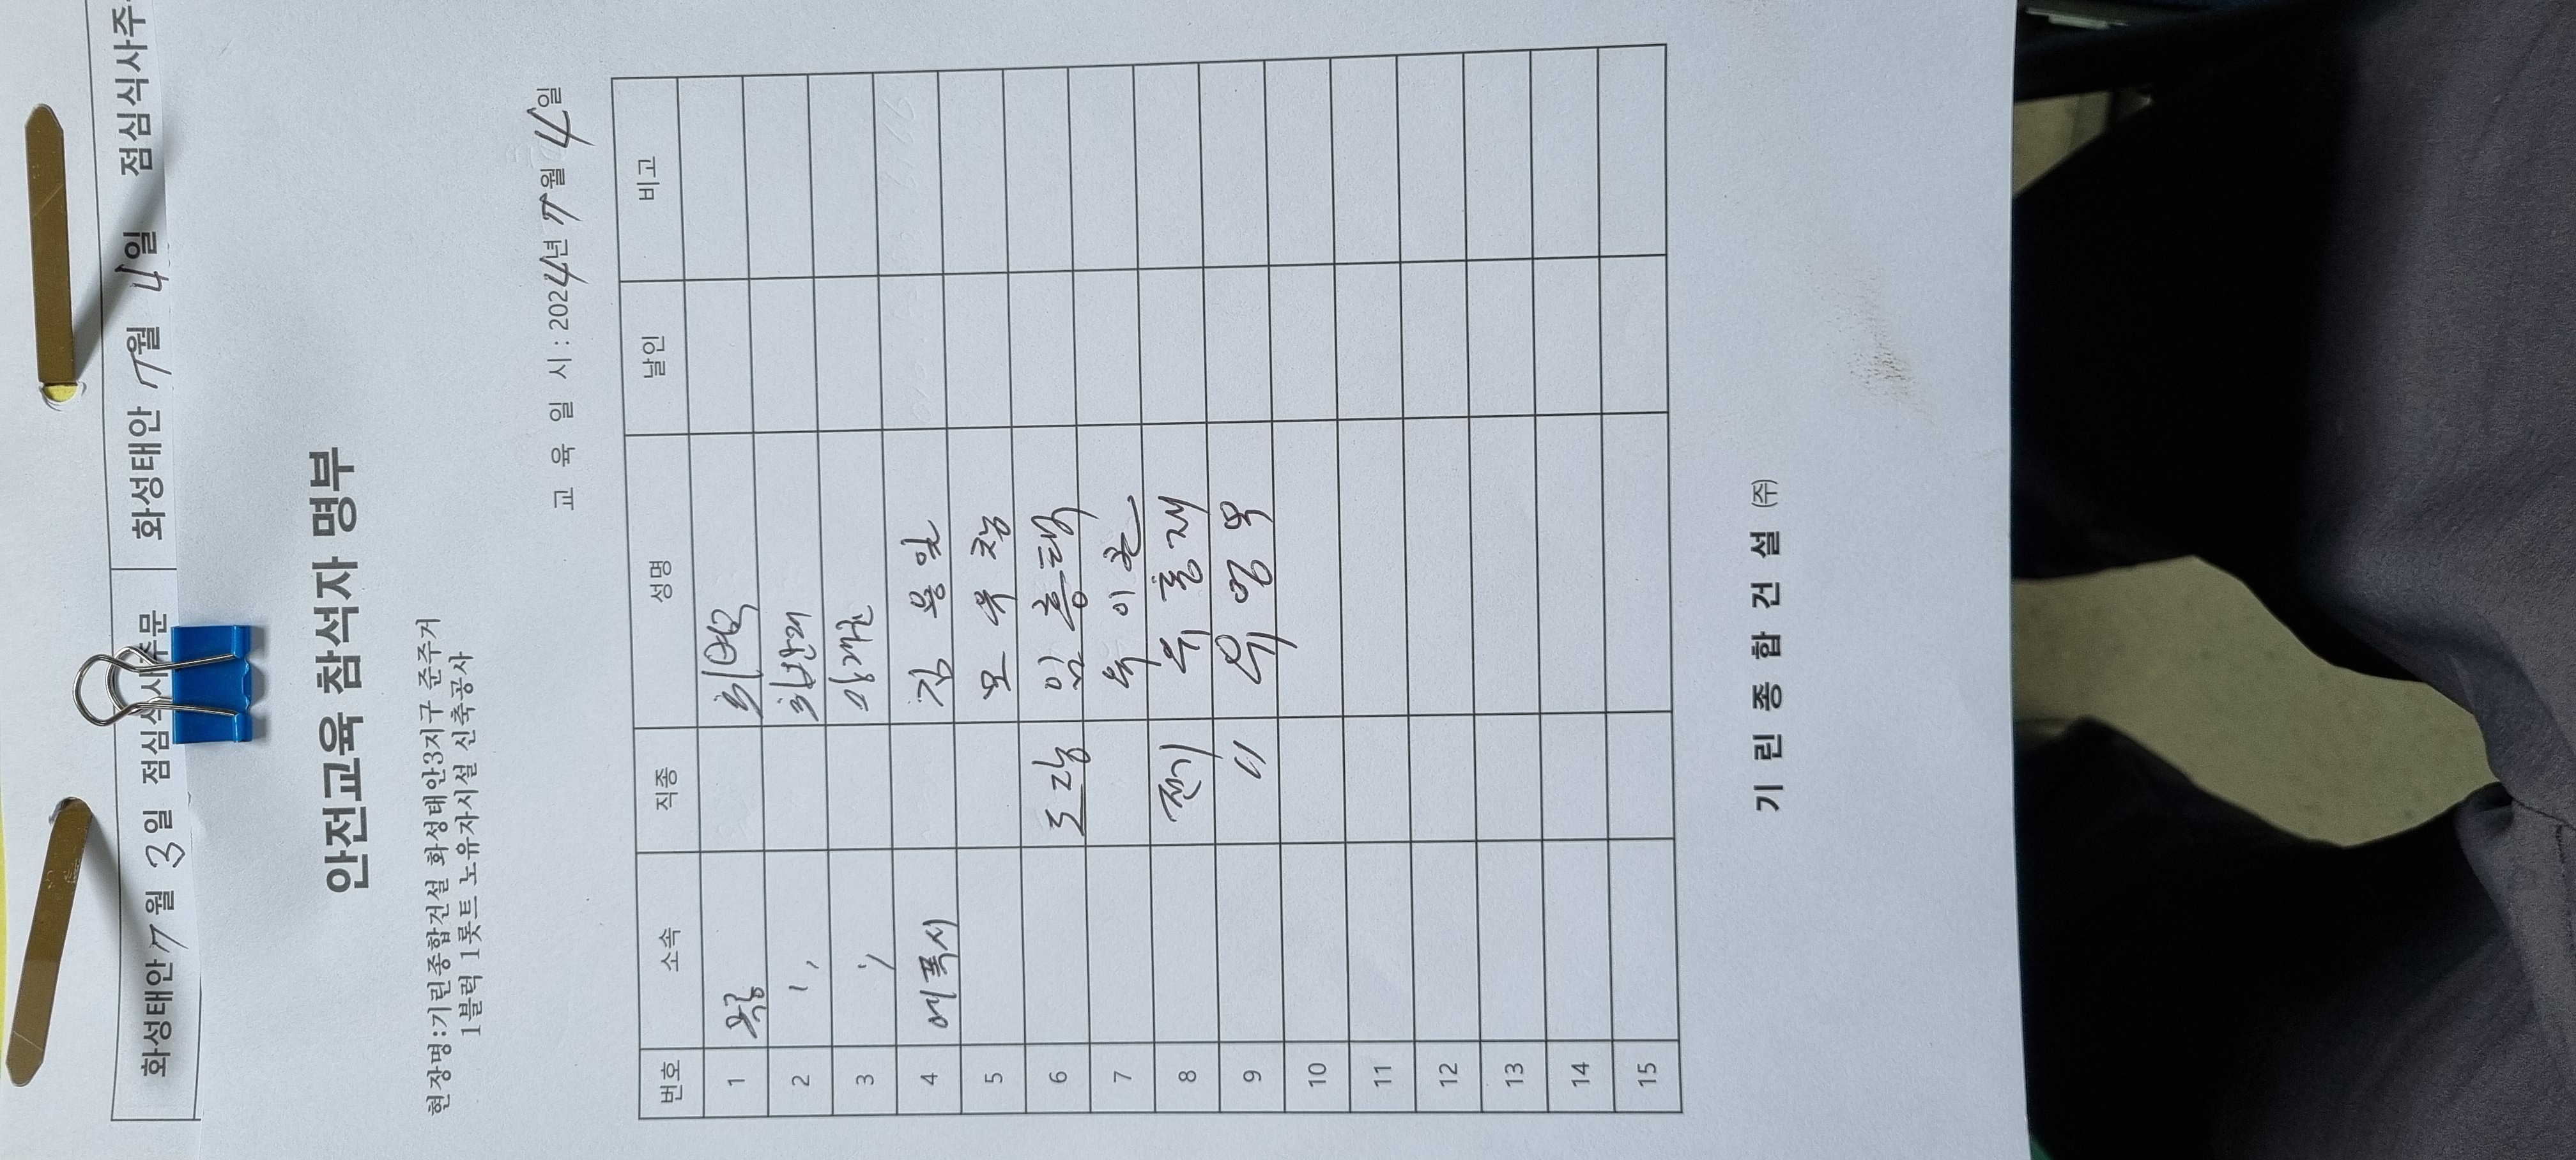 화성태안 7월 3일 점심식사주문
화성태안 7월 4일 점심식사주
안전교육 참석자 명부
현장명:기린종합건설 화성태안3지구 준주거
1블럭 1롯트 노유자시설 신축공사
교 육 일 시 : 2024년 7월 4일
번호 소속 직종 성명 날인 비고
1
2 〃
3 〃
4 에폭시 김용일
5
6 도장 임흥택
7
8 전기
9 〃
10
11
12
13
14
15
기 린 종 합 건 설 (주)